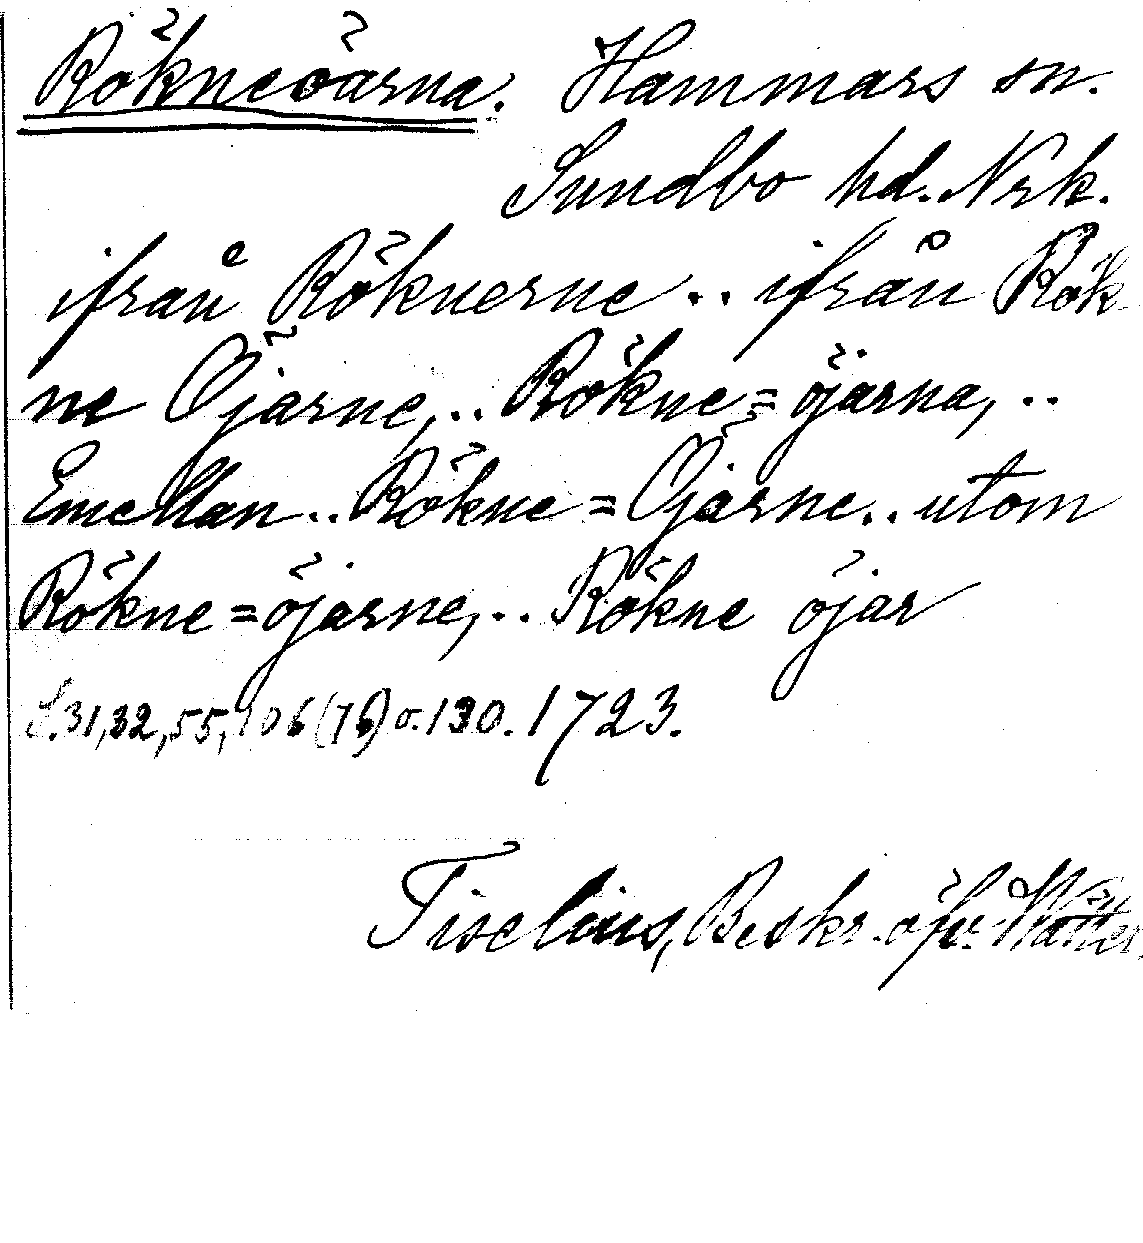 Rökneöarna. Hammars sn.
Sundbo hd. Nrk.
ifrån Röknerne .. ifrån Rök
ne Öjarne, .. Rökne=öjarna, ..
Emellan .. Rökne=Öjarne .. utom
Rökne=öjarne, .. Rökne öjar
S. 31, 32, 55, 106 (76) o. 130. 1723.
Tiselius, Beskr. öfv. Wätter.